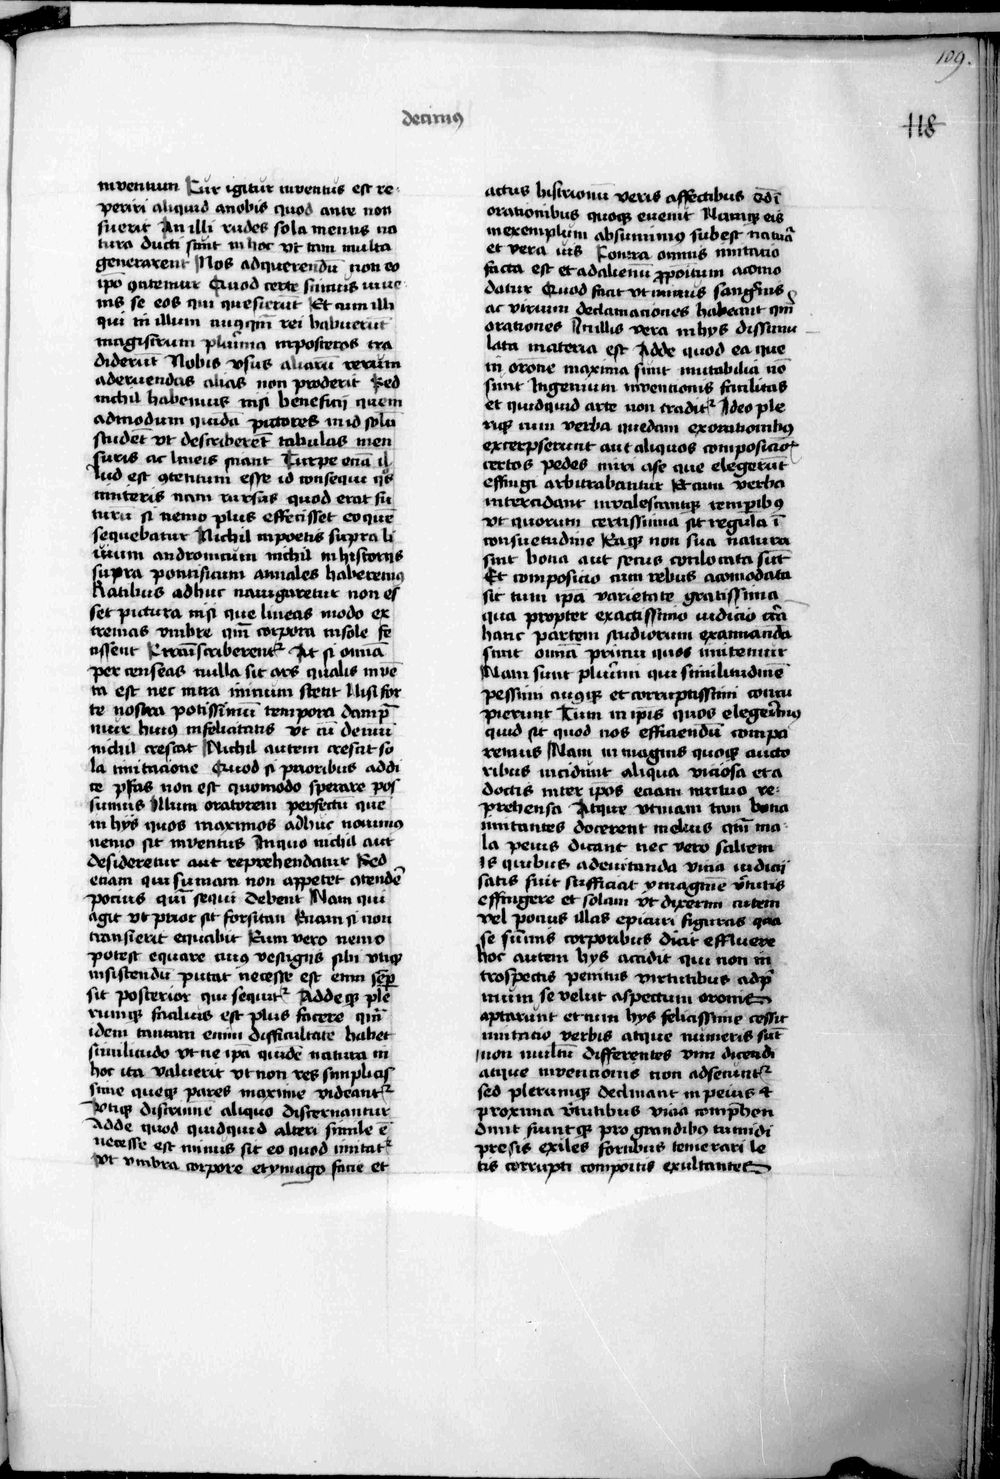 109.
decimus
118
inventum Cur igitur inventus est re-
periri aliquid anobis quod ante non
fuerit An illi rudes sola mentis na
tura ducti sunt in hoc vt tam multa
generarent Nos adquerendū non eo
ipō ꝯtemur Quod certe simus inve
nis se eos qui quesierūt Et cum illi
qui in illum cuiꝙm̄ rei habuerūt
magistrum plurīma inposteros tra
diderūt Nobis vsus aliarū rerum
aderuendas alias non proderit Sed
nichil habemus nisi beneficij quem
admodum quidā pictores in id solū
studēt vt describerēt tabulas men
suris ac lineis sciant Turpe eciā il
lud est ꝯtentum esse id consequi qđ
imiteris nam rursūs quod erat fu
turū si nemo plus effecisset eo quē
sequebatur Nichil inpoetis supra li
uium andronicum nichil in historijs
supra pontificum annales haberemꝰ
Ratibus adhuc nauigaretur non es
set pictura nisi que lineas modo ex
tremas vmbre qm̄ corpora insole fe
cissent Et trānscriberentᷣ At si omīa
per censeas nulla sit ars qualis inve
ta est nec intra inicium stetit Nisi for
te nostra potissimū tempora dampn̄
mur huiꝰ infelicitatis vt cū demū
nichil crescat Nichil autem crescit so
la imitacione Quod si prioribus addi
te p̄fas non est quomodo sperare pos
sumus Illum oratorem perfectū que
in hys quos maximos adhuc nouimꝰ
nemo sit inventus In quo nichil aut
desideretur aut reprehendatur Sed
etiam qui sumam non appetet ꝯtendē
pocius qm̄ sequi debent Nam qui
agit vt prior sit forsitan Etiam si non
transierit equabit Eum vero nemo
potest equare cuiꝰ vestigijs sibi vtiqꝫ
insistendū putat necesse est enim semp̄
sit posterior qui sequitᷣ Adde qꝫ ple
rumqꝫ facilius est plus facere qm̄
idem tantam enim difficultate habet
similitudo vt ne ipā quidē natura in
hoc ita valuerit vt non res simplicis
sime queqꝫ pares maxime videantᷣ
vtiqꝫ discrimine aliquo discernantur
Adde quod quidquid alteri simile ē
necesse est minus sit eo quod imitatᷣ
vt vmbra corpore et ymago facie et
actus histrionū veris affectibus Qđ ī
orationibus quoqꝫ euenit Namqꝫ eis
in exemplum absumimꝰ subest natuā
et vera vis Contra omnis imitacio
facta est et ad alienū ꝓpoitum acomo
datur Quod facit vt minus sangīnis
ac virium declamaciones habeant qm̄
orationes In illis vera in hys dissimu
lata materia est Adde quod ea que
in orōne maxima sunt imitabilia nō
sunt Ingenium inventionis facilitas
et quidquid arte non traditᷣ Ideo ple
riqꝫ cum verba quedam ex orationibꝰ
excerpserunt aut aliquos composicio
certos pedes miri a se que elegerūt
effingi arbitrabantur Et cum verba
intercidant invalescantqꝫ temp̄ibꝰ
vt quorum certissima sit regula ī
consuetudine Eaqꝫ non sua natura
sint bona aut secus conlocata sūt
Et composicio cum rebus acomodata
sit tum ipā varietate gratissima
qua propter exactissimo iudicio circā
hanc partem studiorum examinanda
sunt omā primū quos imitemur
Nam sunt plurīmi qui similitudinē
pessimi cuiqꝫ et corruptissimi concu
pierunt Tum in ipīs quos elegerīmꝰ
quid sit quod nos efficiendū compa
remus Nam in magnis quoqꝫ aucto
ribus incidūnt aliqua viciosa et a
doctis inter ipos eciam mutuo re-
prehensa Atque vtinam tam bona
imitantes docerent melius qm̄ ma-
la peius dicant nec vero saltem
Is quibus ad evitanda vicia iudicij
satis fuit sufficiat ymaginē v̄tutis
effingere et solam vt dixerim cutem
vel pocius illas epicuri figuras quas
se sūmis corporibus dicit effluere
hoc autem hys accidit qui non in
trospectis penitus virtutibus ad p̄
mum se velut aspectum orōnis
aptarunt et cum hys felicissime cessit
imitacio verbis atque numeris sūt
non multū differentes vim dicendi
atque inventionis non adsecuntᷣ
sed plerumqꝫ declinant in peius et
proxima v̄tutibus vicia comp̄hen
dunt fiuntqꝫ pro grandibꝰ tumidi
presis exiles fortibus temerari le
tis corrupti compoitis exultantes